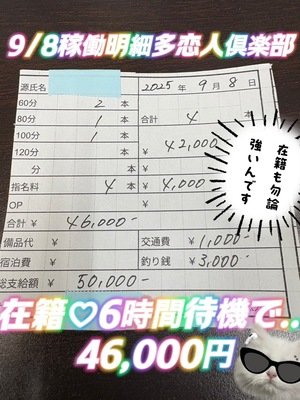 9/8稼働明細多恋人倶楽部
源氏名
2025年 9月 8日
60分 2 本
80分 1 本 合計 4 本
100分 1 本 ¥ 42,000-
120分 本
分 本
指名料 4 本 ¥ 4,000-
OP ¥
合計 ¥ 46,000-
備品代 ¥ 交通費 ¥ 1,000-
宿泊費 ¥ 釣り銭 ¥ 3,000-
総支給額 ¥ 50,000-
在籍も勿論
強いんです
在籍♡6時間待機で..
46,000円